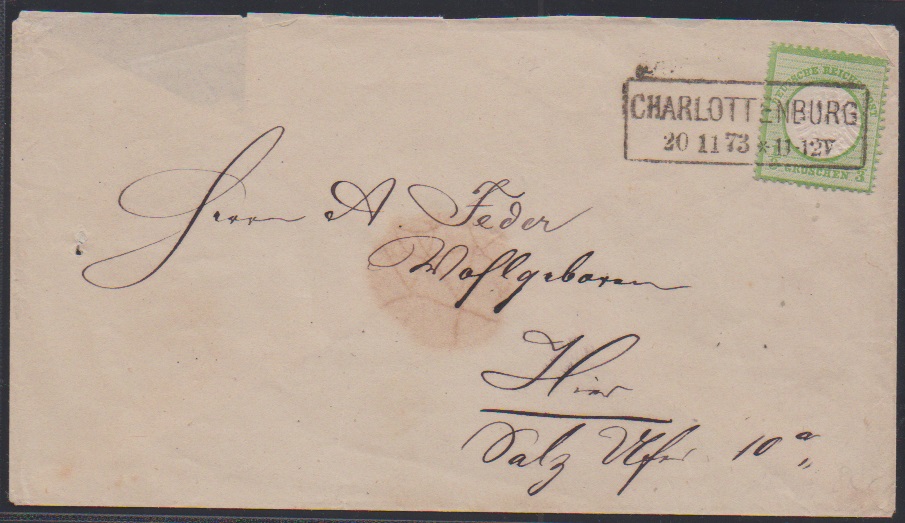 DEUTSCHE REICHS-POST
CHARLOTTENBURG
20 11 73 * 11-12V
GROSCHEN 3
Herrn A. Feder
Wohlgeboren
Hier
Salz Ufer 10a